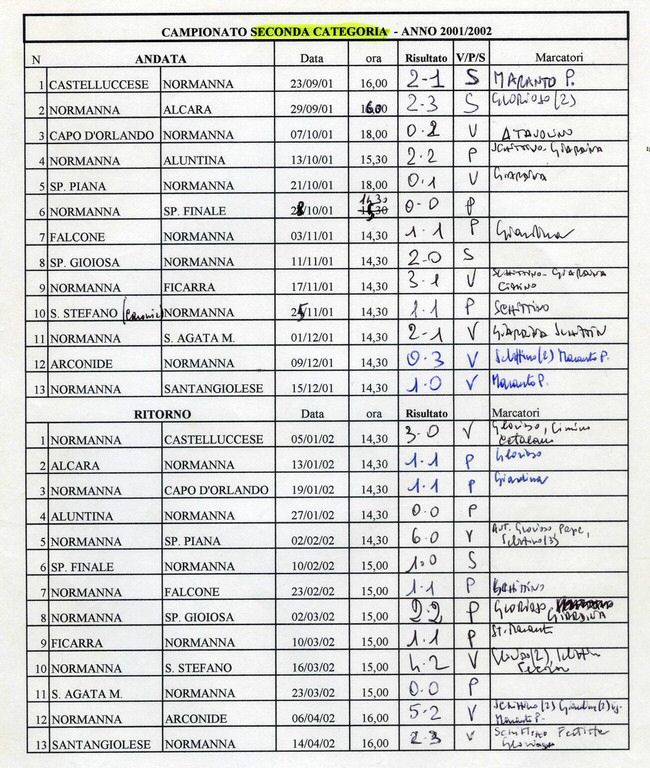 CAMPIONATO SECONDA CATEGORIA - ANNO 2001/2002
N ANDATA Data ora Risultato V/P/S Marcatori
1 CASTELLUCCESE NORMANNA 23/09/01 16,00 2-1 S MARANTO P.
2 NORMANNA ALCARA 29/09/01 16,00 2-3 S GLORIOSO (2)
3 CAPO D'ORLANDO NORMANNA 07/10/01 18,00 0-2 V
4 NORMANNA ALUNTINA 13/10/01 15,30 2-2 P SCHITTINO-GIARDINA
5 SP. PIANA NORMANNA 21/10/01 18,00 0-1 V GIARDINA
14,30
6 NORMANNA SP. FINALE 28/10/01 0-0 P
7 FALCONE NORMANNA 03/11/01 14,30 1-1 P Giardina
8 SP. GIOIOSA NORMANNA 11/11/01 14,30 2-0 S
9 NORMANNA FICARRA 17/11/01 14,30 3-1 V SCHITTINO-GIARDINA
CIMINO
10 S. STEFANO NORMANNA 25/11/01 14,30 1-1 P SCHITTINO
11 NORMANNA S. AGATA M. 01/12/01 14,30 2-1 V GIARDINA SCHITTINO
12 ARCONIDE NORMANNA 09/12/01 14,30 0-3 V Schittino (2) Maranto P.
13 NORMANNA SANTANGIOLESE 15/12/01 14,30 1-0 V Maranto P.
RITORNO Data ora Risultato Marcatori
1 NORMANNA CASTELLUCCESE 05/01/02 14,30 3-0 V Glorioso, Cimino
Catalano
2 ALCARA NORMANNA 13/01/02 14,30 1-1 P Glorioso
3 NORMANNA CAPO D'ORLANDO 19/01/02 14,30 1-1 P Giardina
4 ALUNTINA NORMANNA 27/01/02 14,30 0-0 P
5 NORMANNA SP. PIANA 02/02/02 14,30 6-0 V AUT. Glorioso Pepe,
Schittino (3)
6 SP. FINALE NORMANNA 10/02/02 15,00 1-0 S
7 NORMANNA FALCONE 23/02/02 15,00 1-1 P SCHITTINO
8 NORMANNA SP. GIOIOSA 02/03/02 15,00 2-2 P GLORIOSO,
GIARDINA
9 FICARRA NORMANNA 10/03/02 15,00 1-1 P Maranto
10 NORMANNA S. STEFANO 16/03/02 15,00 4-2 V Glorioso (2), Schittino
11 S. AGATA M. NORMANNA 23/03/02 15,00 0-0 P
12 NORMANNA ARCONIDE 06/04/02 16,00 5-2 V Schittino (2) Giardina (2)
Maranto P.
13 SANTANGIOLESE NORMANNA 14/04/02 16,00 2-3 V Schittino